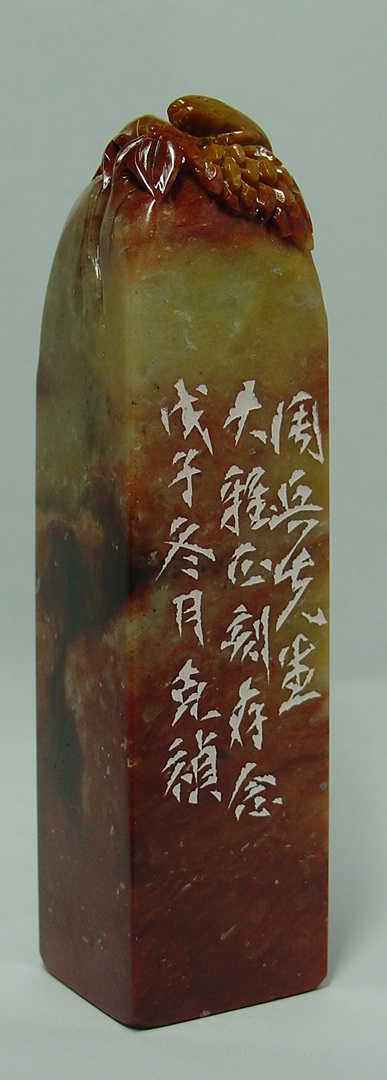 周兵先生
大雅正刻存念
戊子冬月克禎